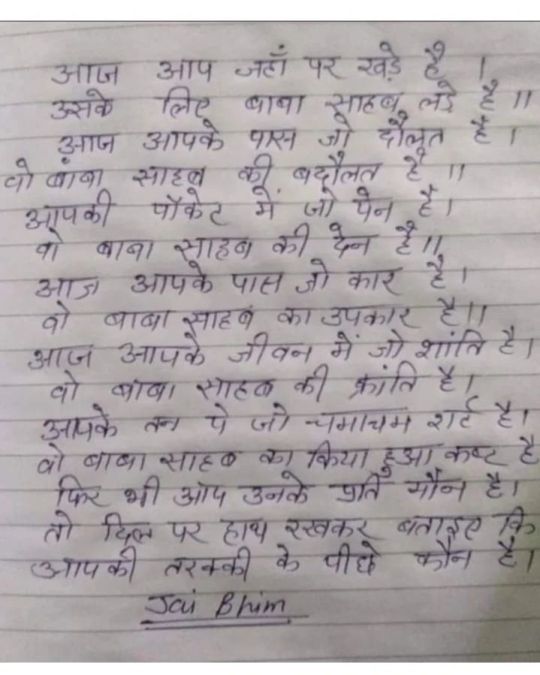 आज आप जहाँ पर खड़े है ।
उसके लिए बाबा साहब लड़े है ॥
आज आपके पास जो दौलत है ।
वो बाबा साहब की बदौलत है ॥
आपकी पॉकेट में जो पेन है।
वो बाबा साहब की देन है॥
आज आपके पास जो कार है।
वो बाबा साहब का उपकार है॥
आज आपके जीवन में जो शांति है।
वो बाबा साहब की क्रांति है।
आपके तन पे जो चमाचम शर्ट है।
वो बाबा साहब का किया हुआ कष्ट है
फिर भी आप उनके प्रति मौन है।
तो दिल पर हाथ रखकर बताइए कि
आपकी तरक्की के पीछे कौन है।
Jai Bhim